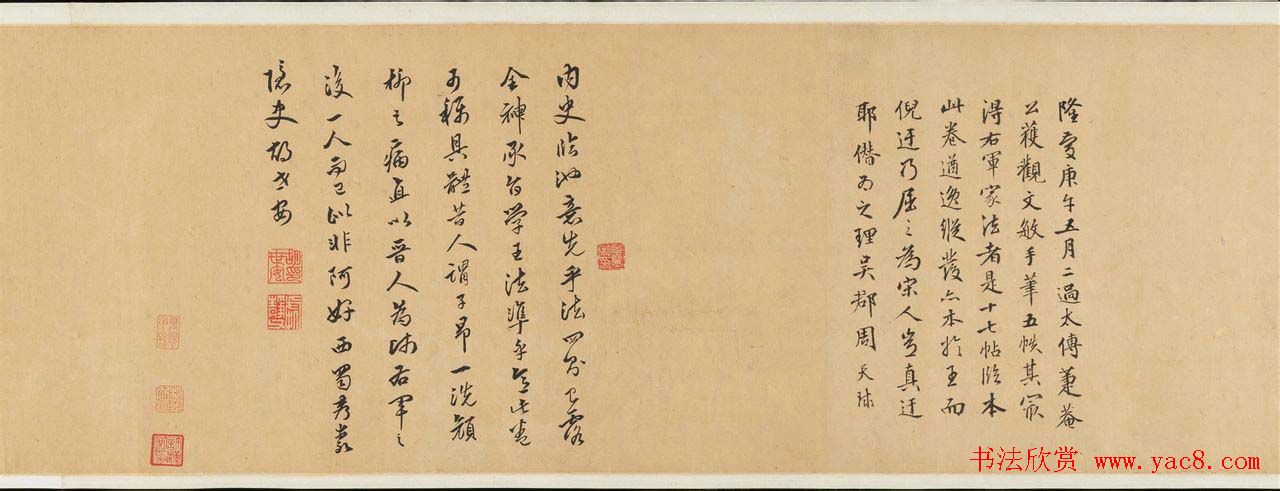 隆慶庚午五月二過太傅蕭菴
公獲觀文敏手筆五帙其最
得右軍家法者是十七帖臨本
此卷遒逸縱發亦本於王而
倪迂乃屈之為宋人豈真迂
耶僭為之理吳郡周天球
內史臨池意先乎法四分已露
全神承旨學王法準乎意此卷
可稱具體昔人謂子昂一洗顏
柳之病直以晉人為師右軍之
後一人而已此非阿好西蜀秀巖
隱史胡世安
书法欣赏 www.yac8.com